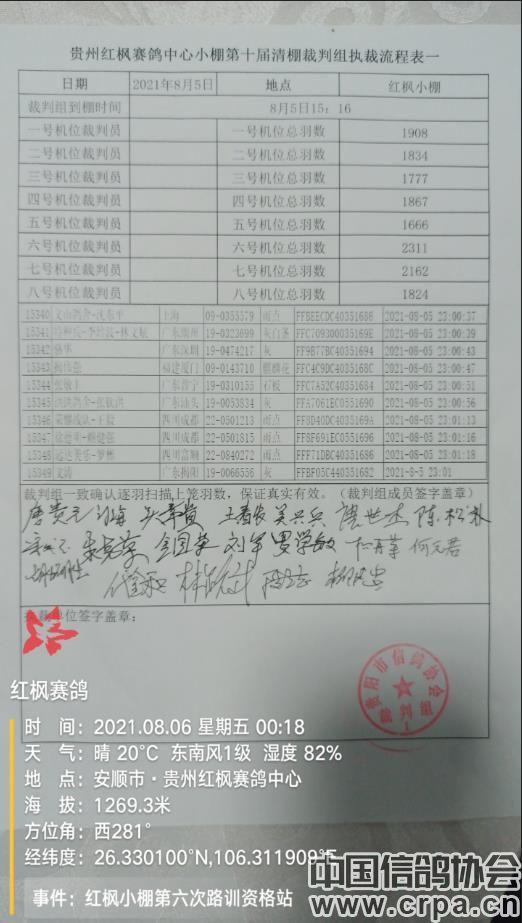 贵州红枫赛鸽中心小棚第十届清棚裁判组执裁流程表一
日期 2021年8月5日 地点 红枫小棚
裁判组到棚时间 8月5日15：16
一号机位裁判员 一号机位总羽数 1908
二号机位裁判员 二号机位总羽数 1834
三号机位裁判员 三号机位总羽数 1777
四号机位裁判员 四号机位总羽数 1867
五号机位裁判员 五号机位总羽数 1666
六号机位裁判员 六号机位总羽数 2311
七号机位裁判员 七号机位总羽数 2162
八号机位裁判员 八号机位总羽数 1824
15340 上海 09-0355579 雨点 FFBEECDC40351688 2021-08-05 23:00:37
15341 19-0323899 灰白条 FFC709300035169E 2021-08-05 23:00:39
15342 广东深圳 19-0474217 灰 FF9B77BC40351694 2021-08-05 23:00:43
15343 福建厦门 09-0143710 麒麟花 FFC4C9DC4035168C 2021-08-05 23:00:48
15344 广东普宁 19-0310155 石板 FFC7A52C40351684 2021-08-05 23:00:51
15345 广东汕头 19-0053834 灰 FFA7061EC0355690 2021-08-05 23:00:56
15346 四川成都 22-0501213 雨点 FF8D40DC4035169A 2021-08-05 23:01:13
15347 四川成都 22-0501815 雨点 FF8F691EC0355691 2021-08-05 23:01:16
15348 四川富顺 22-0840272 雨点 FFF71DBC40351686 2021-08-05 23:01:18
15349 文涛 广东揭阳 19-0066536 灰 FFBF05CC40351682 2021-8-5 23:01
裁判组一致确认逐羽扫描上笼羽数，保证真实有效。（裁判组成员签字盖章）
执裁单位签字盖章：
贵阳市信鸽协会
裁判组
红枫赛鸽
时 间：2021.08.06 星期五 00:18
天 气：晴 20°C 东南风1级 湿度 82%
地 点：安顺市·贵州红枫赛鸽中心
海 拔：1269.3米
方位角：西281°
经纬度：26.330100°N,106.311909°E
事件：红枫小棚第六次路训资格站
中国信鸽协会
www.crpa.cn